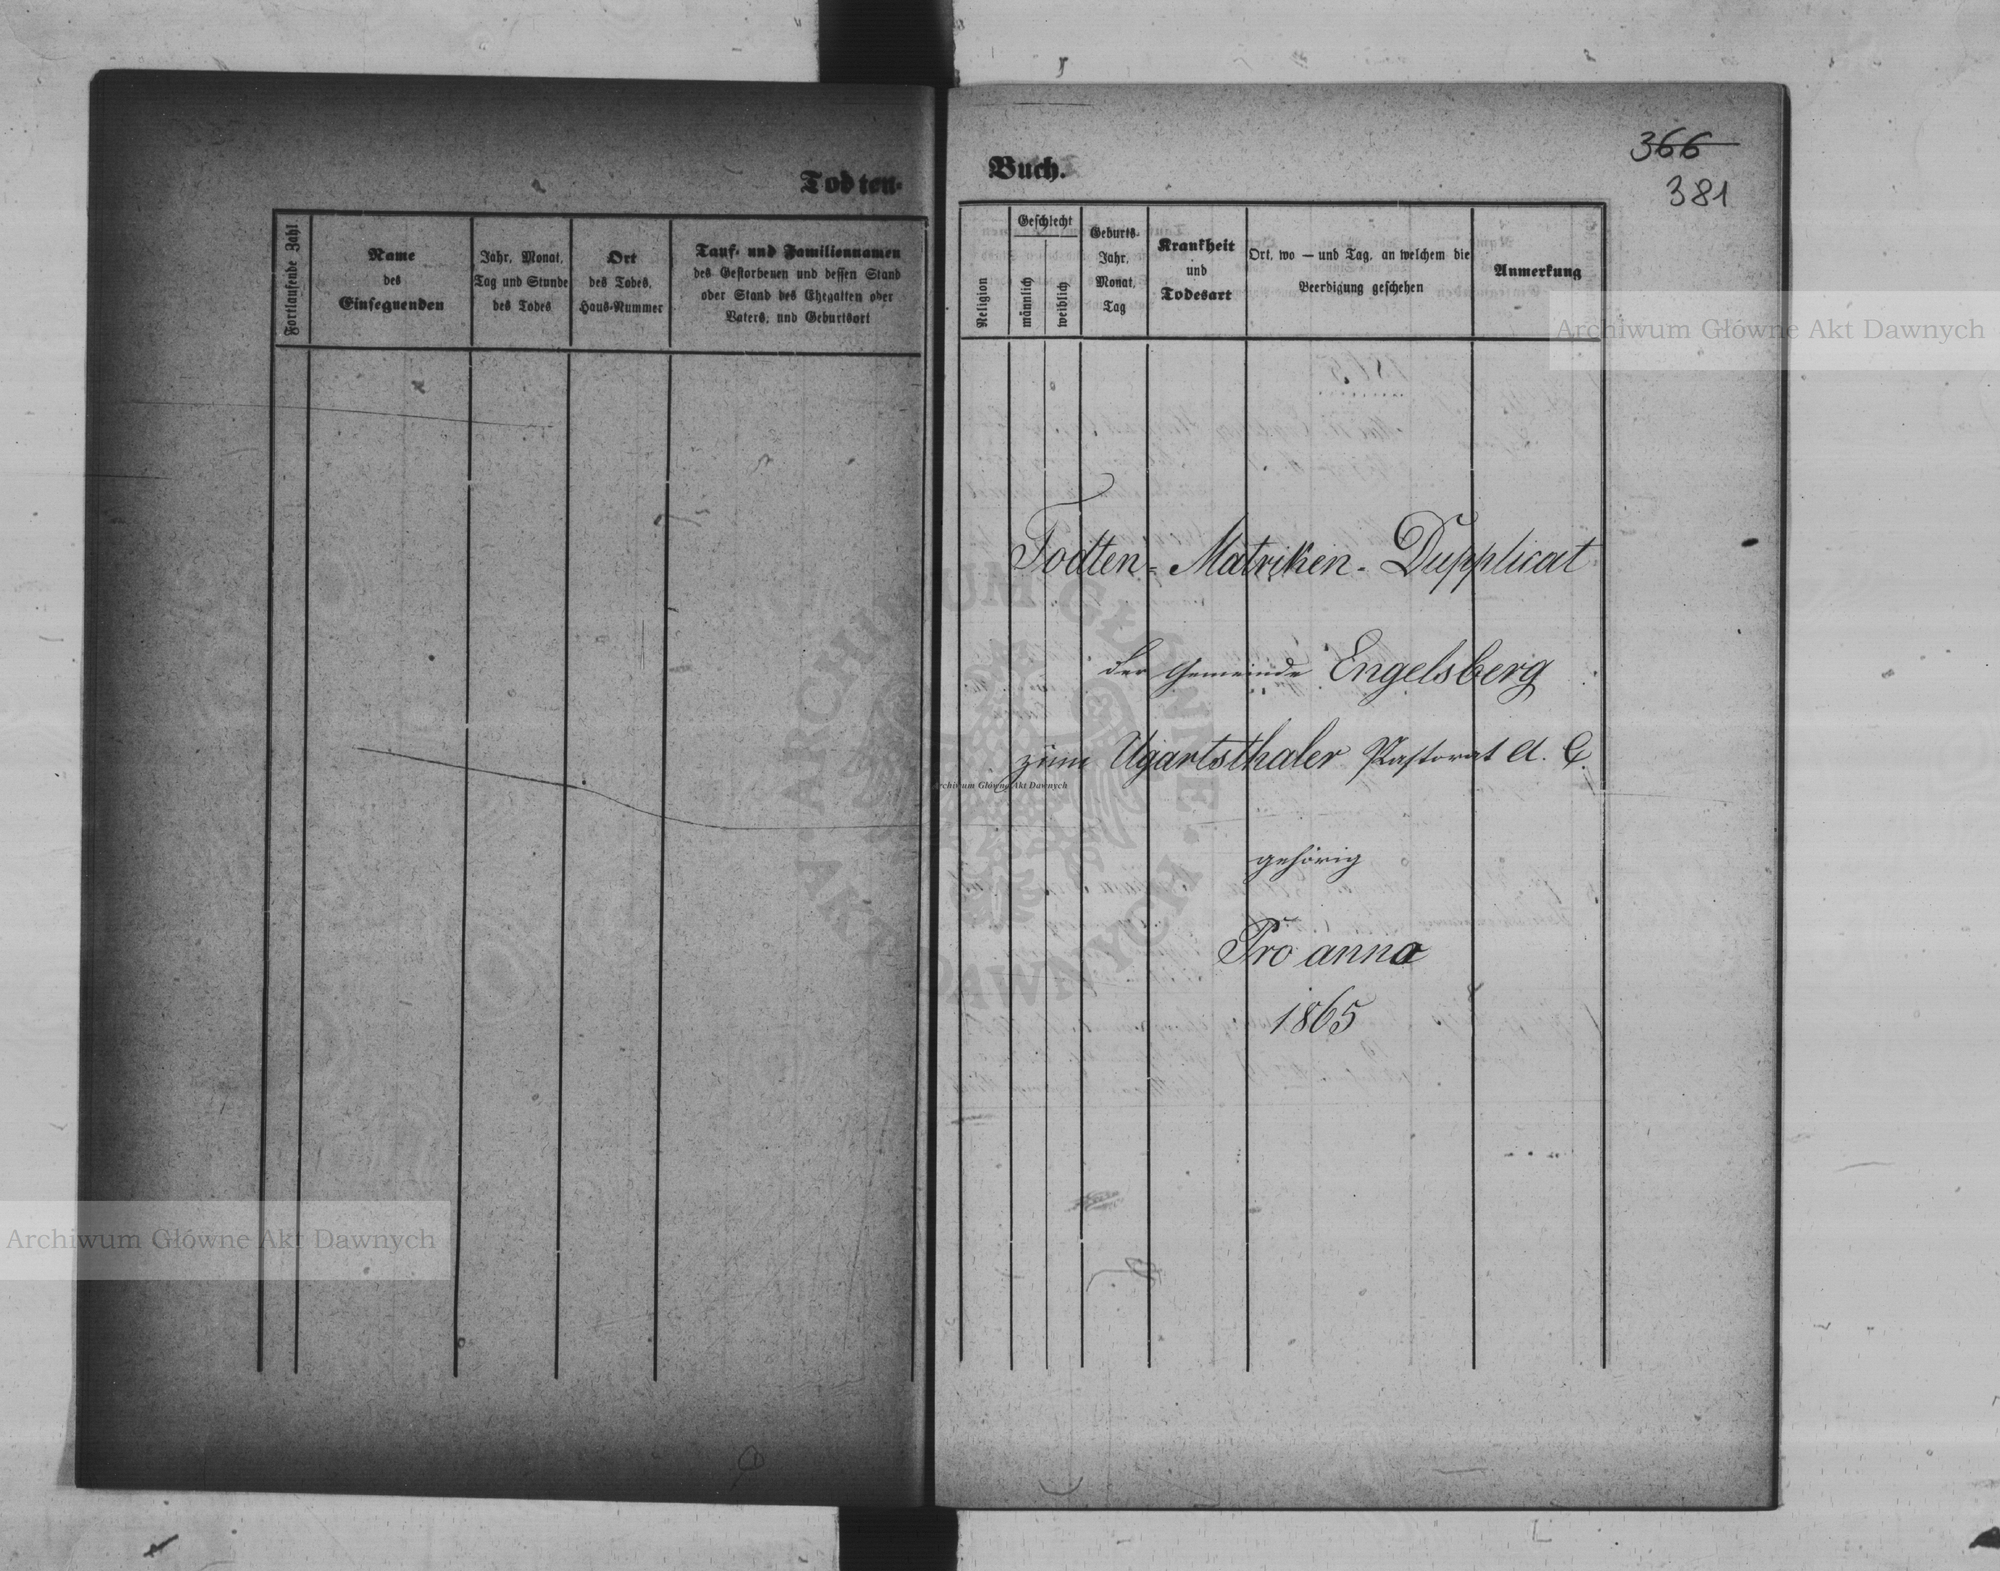 Todten-
Fortlaufende Zahl
Name
des
Einsegnenden
Jahr, Monat,
Tag und Stunde
des Todes
Ort
des Todes,
Haus-Nummer
Tauf- und Familiennamen
des Gestorbenen und dessen Stand
oder Stand des Ehegatten oder
Vaters, und Geburtsort
Buch.
366
381
Religion
Geschlecht
männlich
weiblich
Geburts-
Jahr,
Monat,
Tag
Krankheit
und
Todesart
Ort, wo — und Tag, an welchem die
Beerdigung geschehen
Anmerkung
Todten-Matriken-Dupplicat
der Gemeinde Engelsberg
zum Ugartsthaler Pastorat A. C.
gehörig
Pro anno
1865
Archiwum Główne Akt Dawnych
Archiwum Główne Akt Dawnych
Archiwum Główne Akt Dawnych
ARCHIWUM GŁÓWNE
AKT DAWNYCH